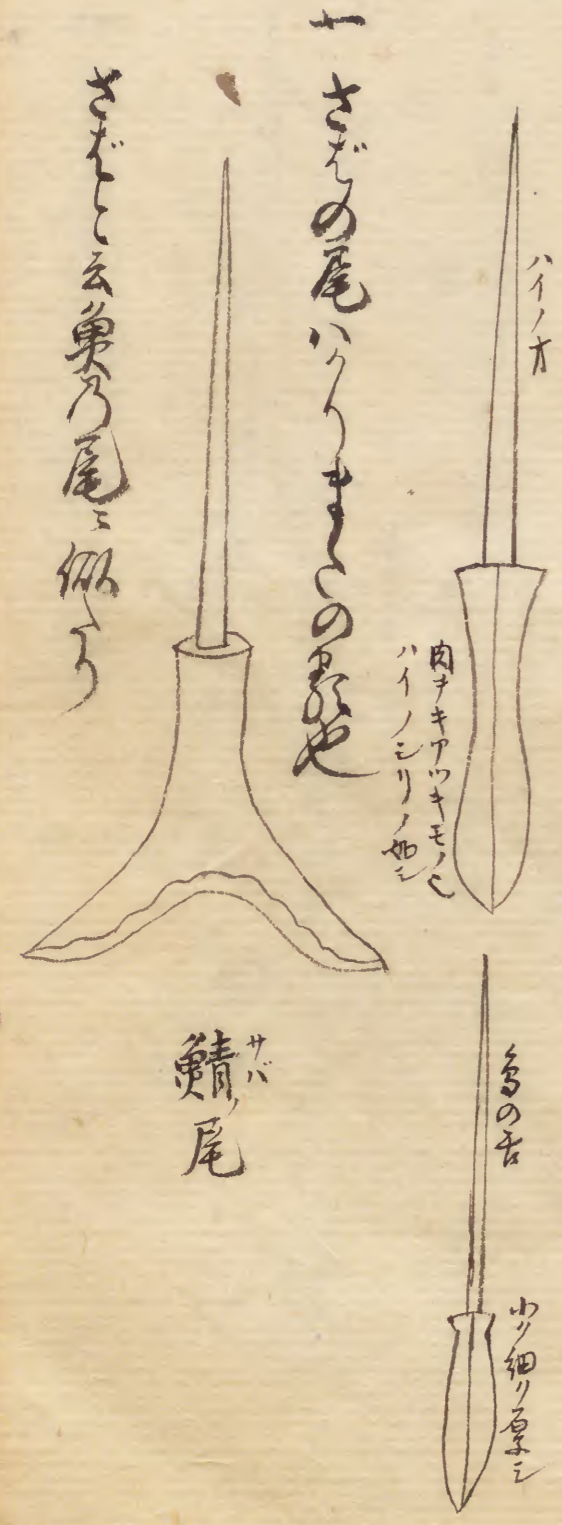 ハイノ方
肉ナキアツキモノ也
ハイノシリノ如シ
鳥の舌
小ク細ク厚シ
一 さばの尾ハかりまたの類也
さばと云魚乃尾ニ似たり
鯖ノ尾
サバ